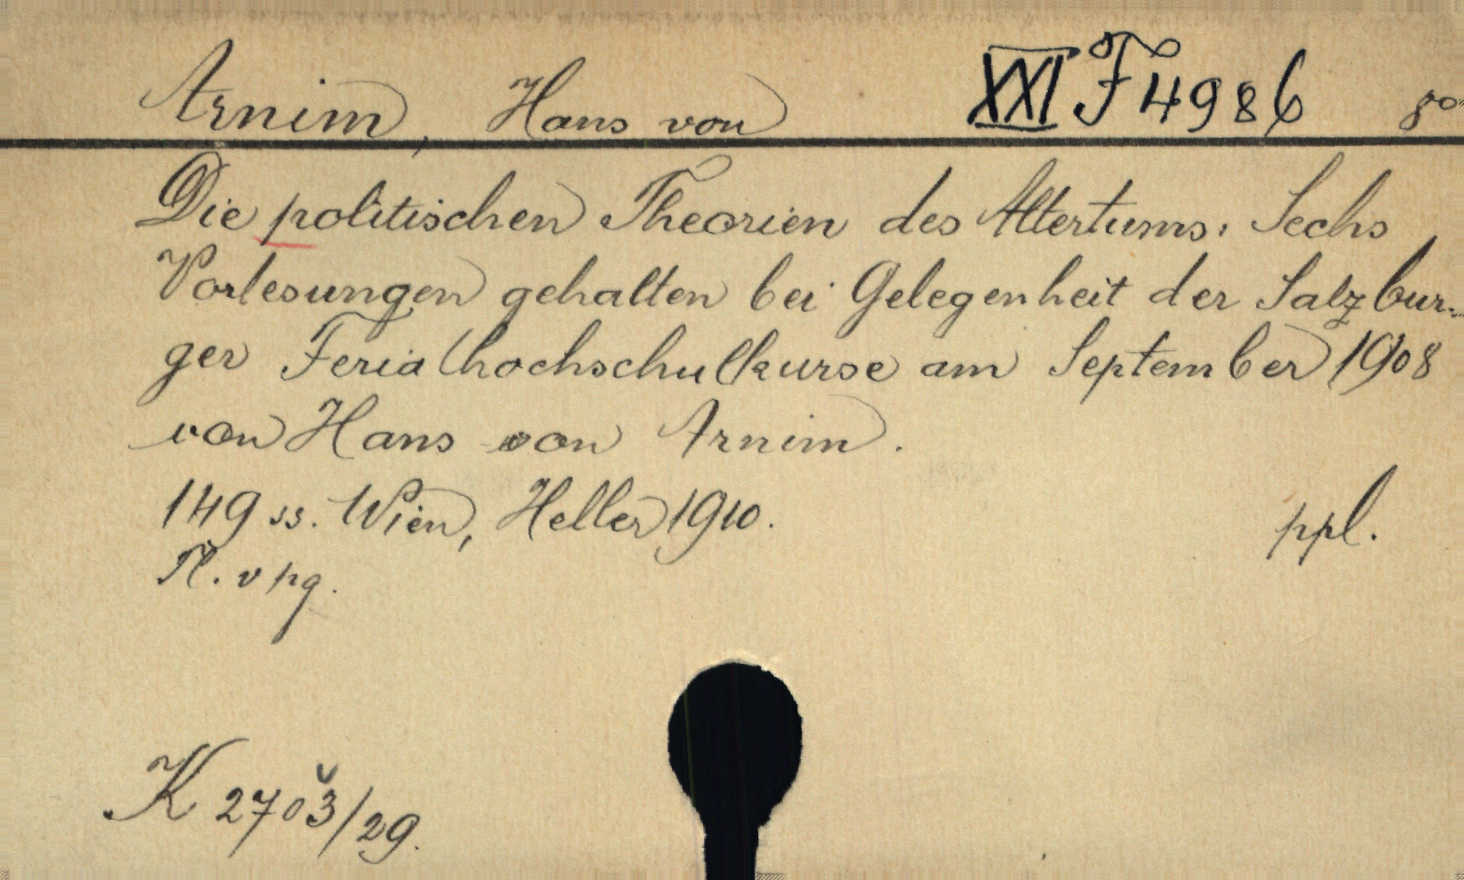 Arnim, Hans von XXI F 4986 8°
Die politischen Theorien des Altertums. Sechs
Vorlesungen gehalten bei Gelegenheit der Salzbur-
ger Ferialhochschulkurse am September 1908
von Hans von Arnim.
149 ss. Wien, Heller 1910. ppl.
K 2703/29.